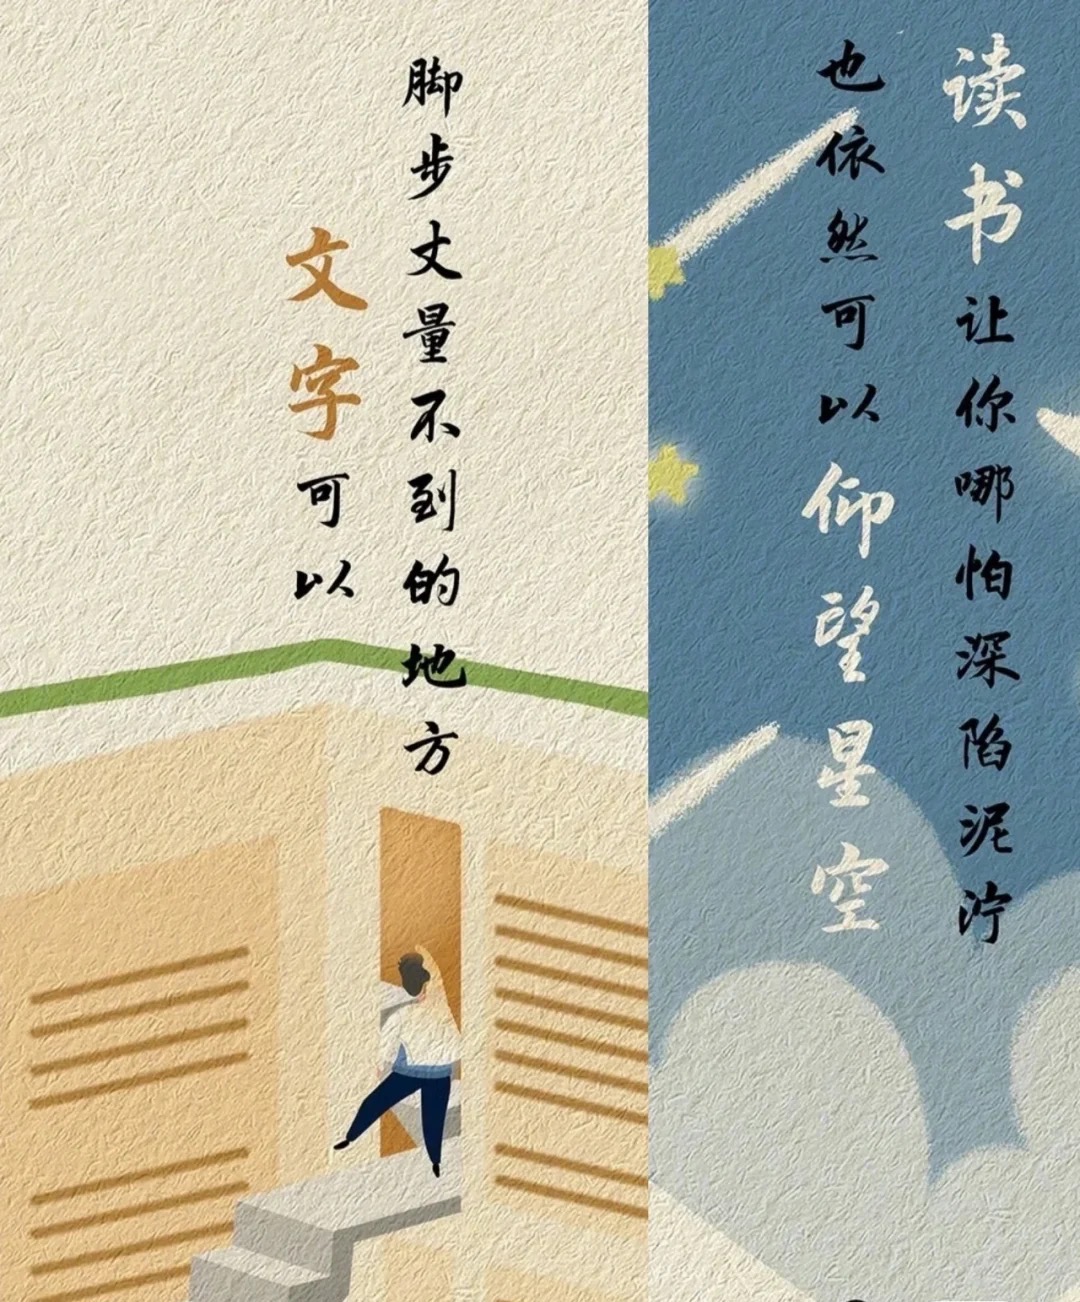 脚步丈量不到的地方
文字可以
读书让你哪怕深陷泥泞
也依然可以仰望星空